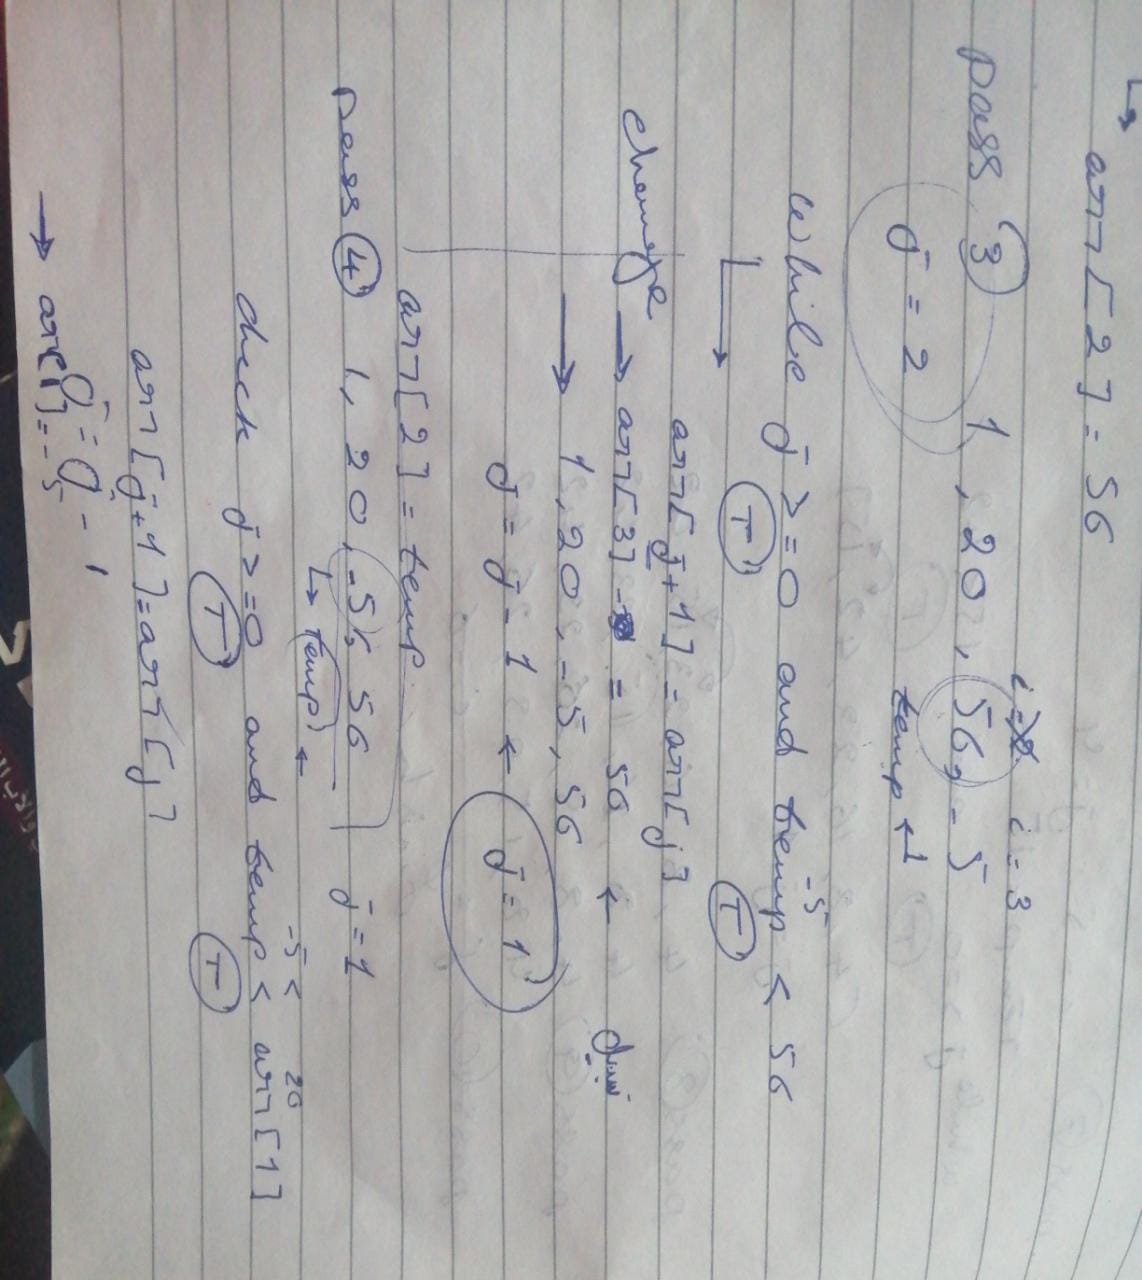 arr[2] = 56
i = 3
pass 3 1, 20, 56, -5
j = 2 temp
-5
while j >= 0 and temp < 56
T T
arr[j+1] = arr[j]
change → arr[3] = 56 ←
→ 1, 20, -5, 56
j = j - 1 ← j = 1
arr[2] = temp
pass 4 1, 20, -5, 56 j = 1
↳ temp ←
-5 < 20
check j >= 0 and temp < arr[1]
T T
arr[j+1] = arr[j]
j = j - 1
→ arr[1] = -5